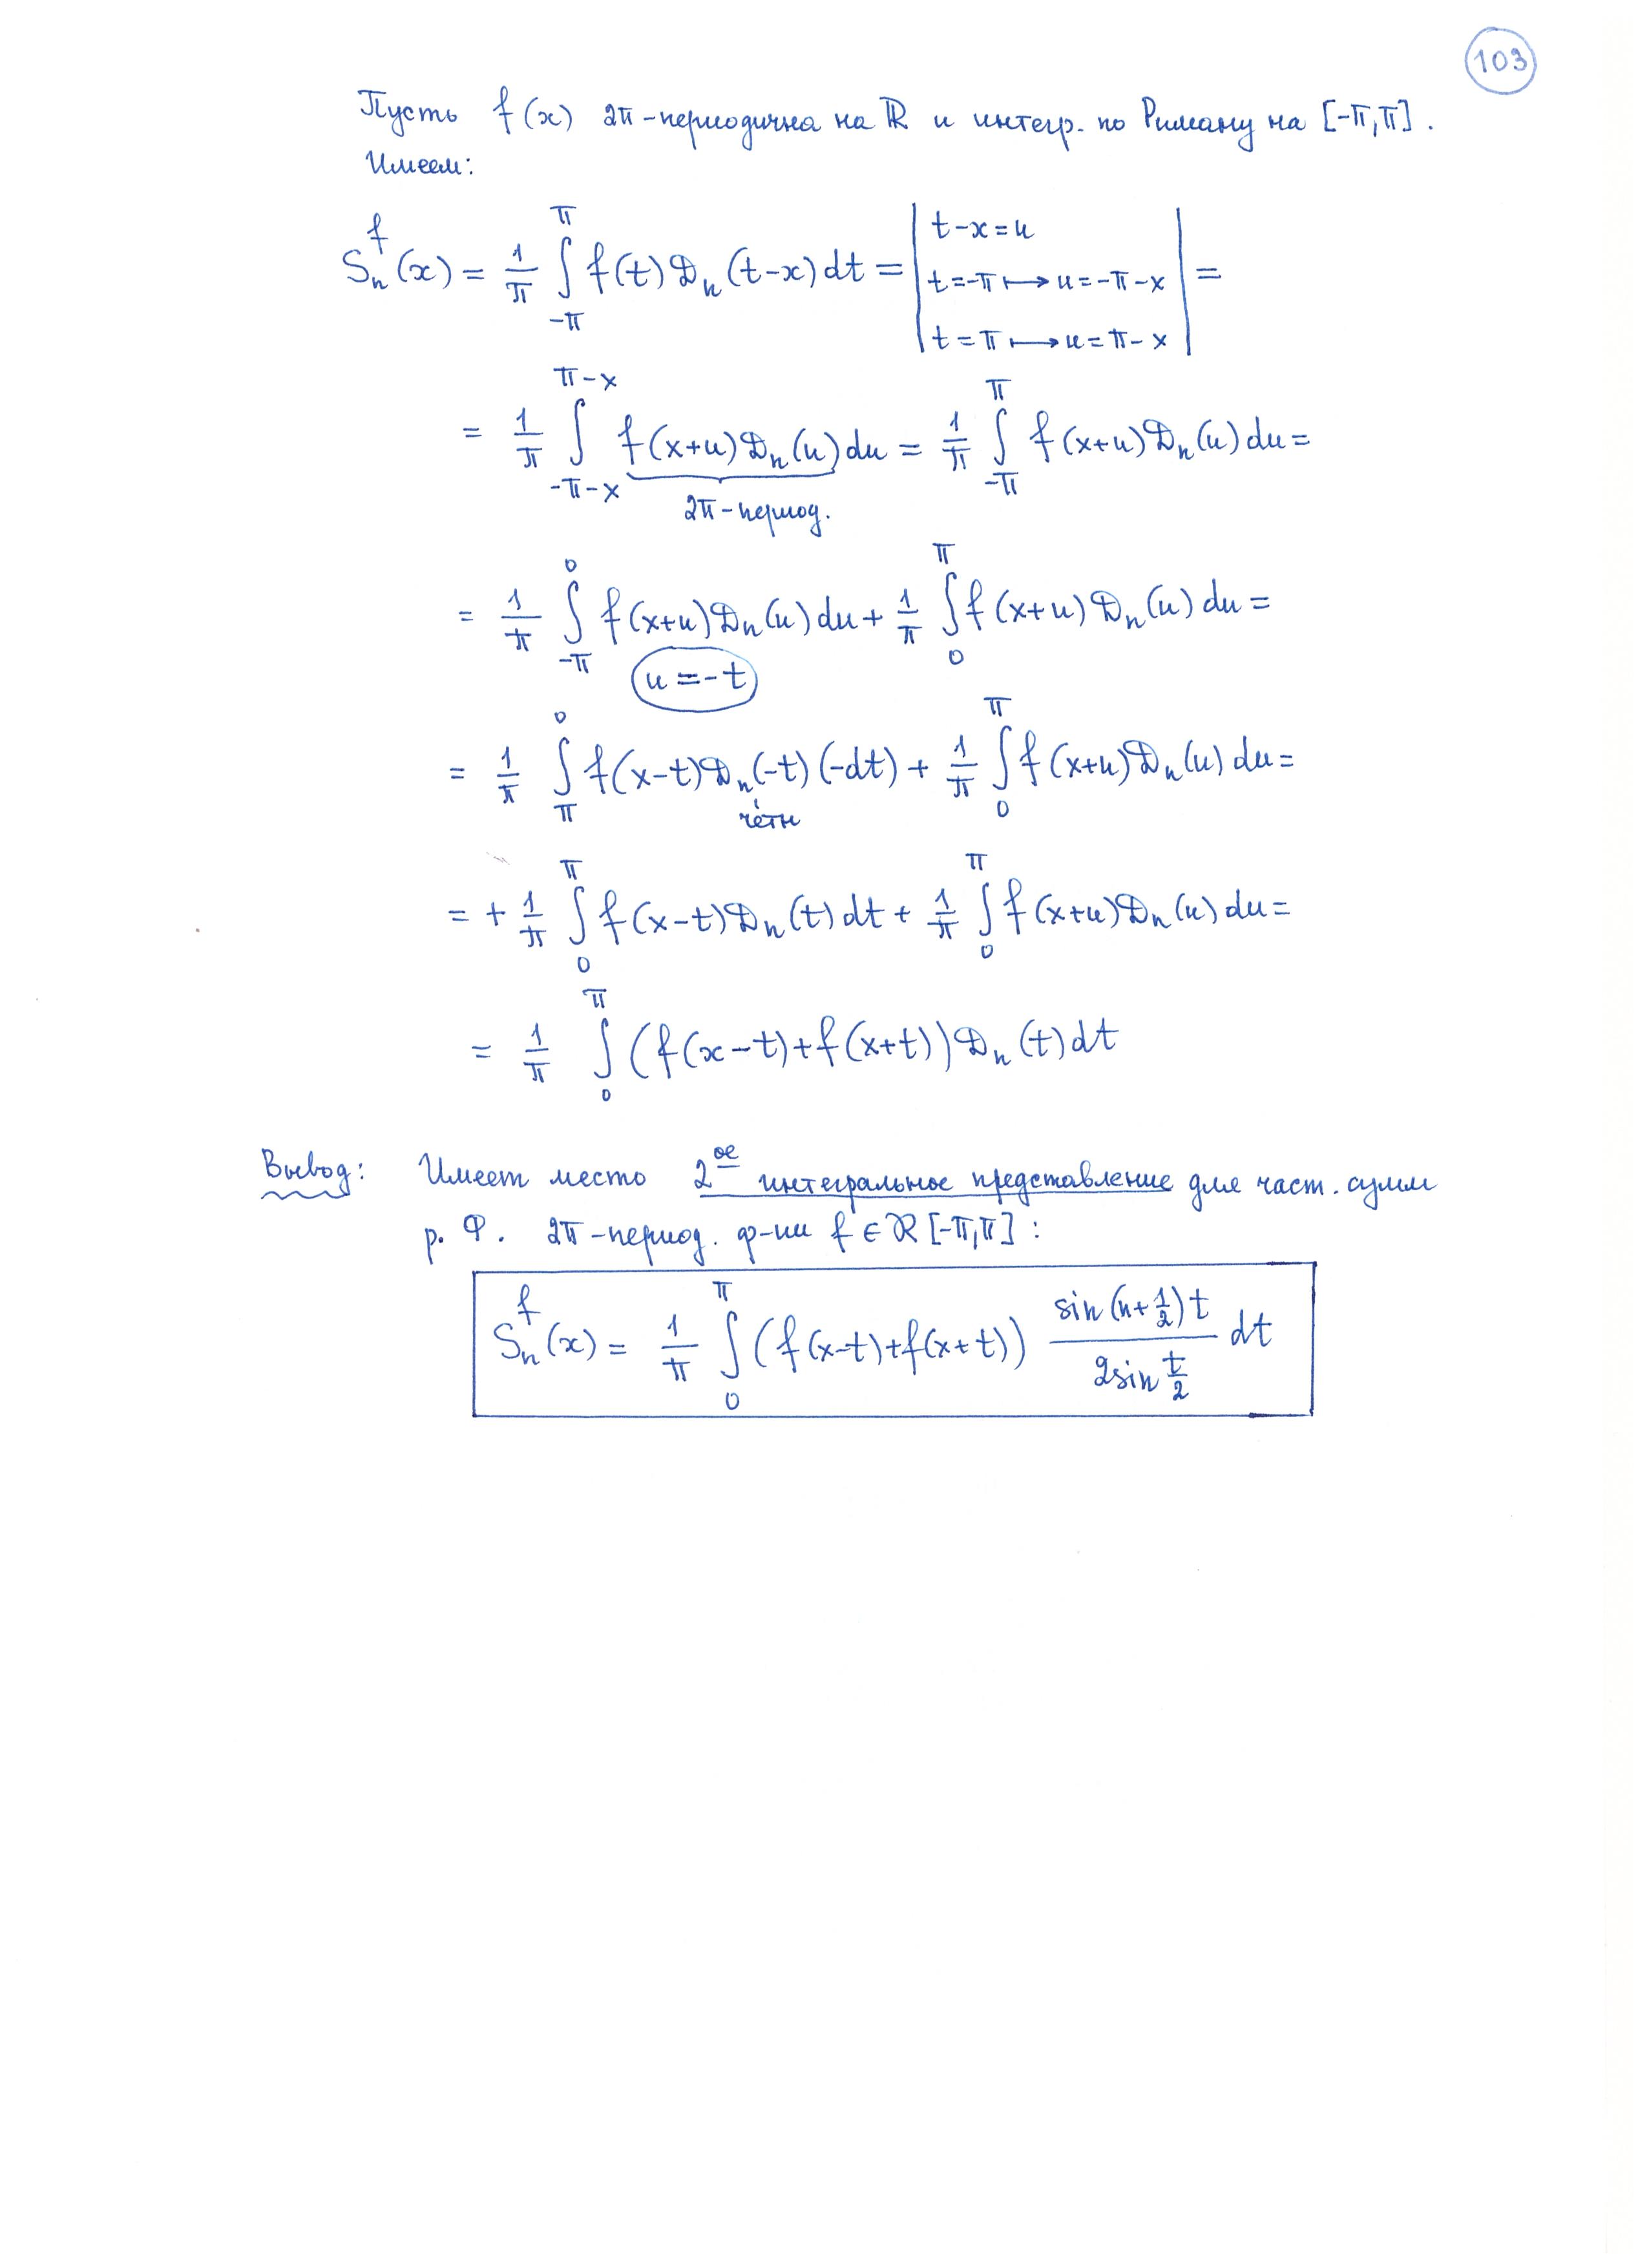 103
Пусть f(x) 2π-периодична на ℝ и интегр. по Риману на [-π,π].
Имеем:
S_n^f(x) = 1/π ∫_{-π}^{π} f(t) 𝔇_n(t-x) dt = | t-x=u; t=-π ⟼ u=-π-x; t=π ⟼ u=π-x | =
= 1/π ∫_{-π-x}^{π-x} f(x+u) 𝔇_n(u) du = 1/π ∫_{-π}^{π} f(x+u) 𝔇_n(u) du =
2π-период.
= 1/π ∫_{-π}^{0} f(x+u) 𝔇_n(u) du + 1/π ∫_{0}^{π} f(x+u) 𝔇_n(u) du =
u=-t
= 1/π ∫_{π}^{0} f(x-t) 𝔇_n(-t) (-dt) + 1/π ∫_{0}^{π} f(x+u) 𝔇_n(u) du =
чётн
= + 1/π ∫_{0}^{π} f(x-t) 𝔇_n(t) dt + 1/π ∫_{0}^{π} f(x+u) 𝔇_n(u) du =
= 1/π ∫_{0}^{π} (f(x-t)+f(x+t)) 𝔇_n(t) dt
Вывод: Имеет место 2^{ое} интегральное представление для част. сумм
р. Ф. 2π-период. ф-ии f ∈ ℛ[-π,π]:
S_n^f(x) = 1/π ∫_{0}^{π} (f(x-t)+f(x+t)) sin(n+1/2)t / 2sin t/2 dt